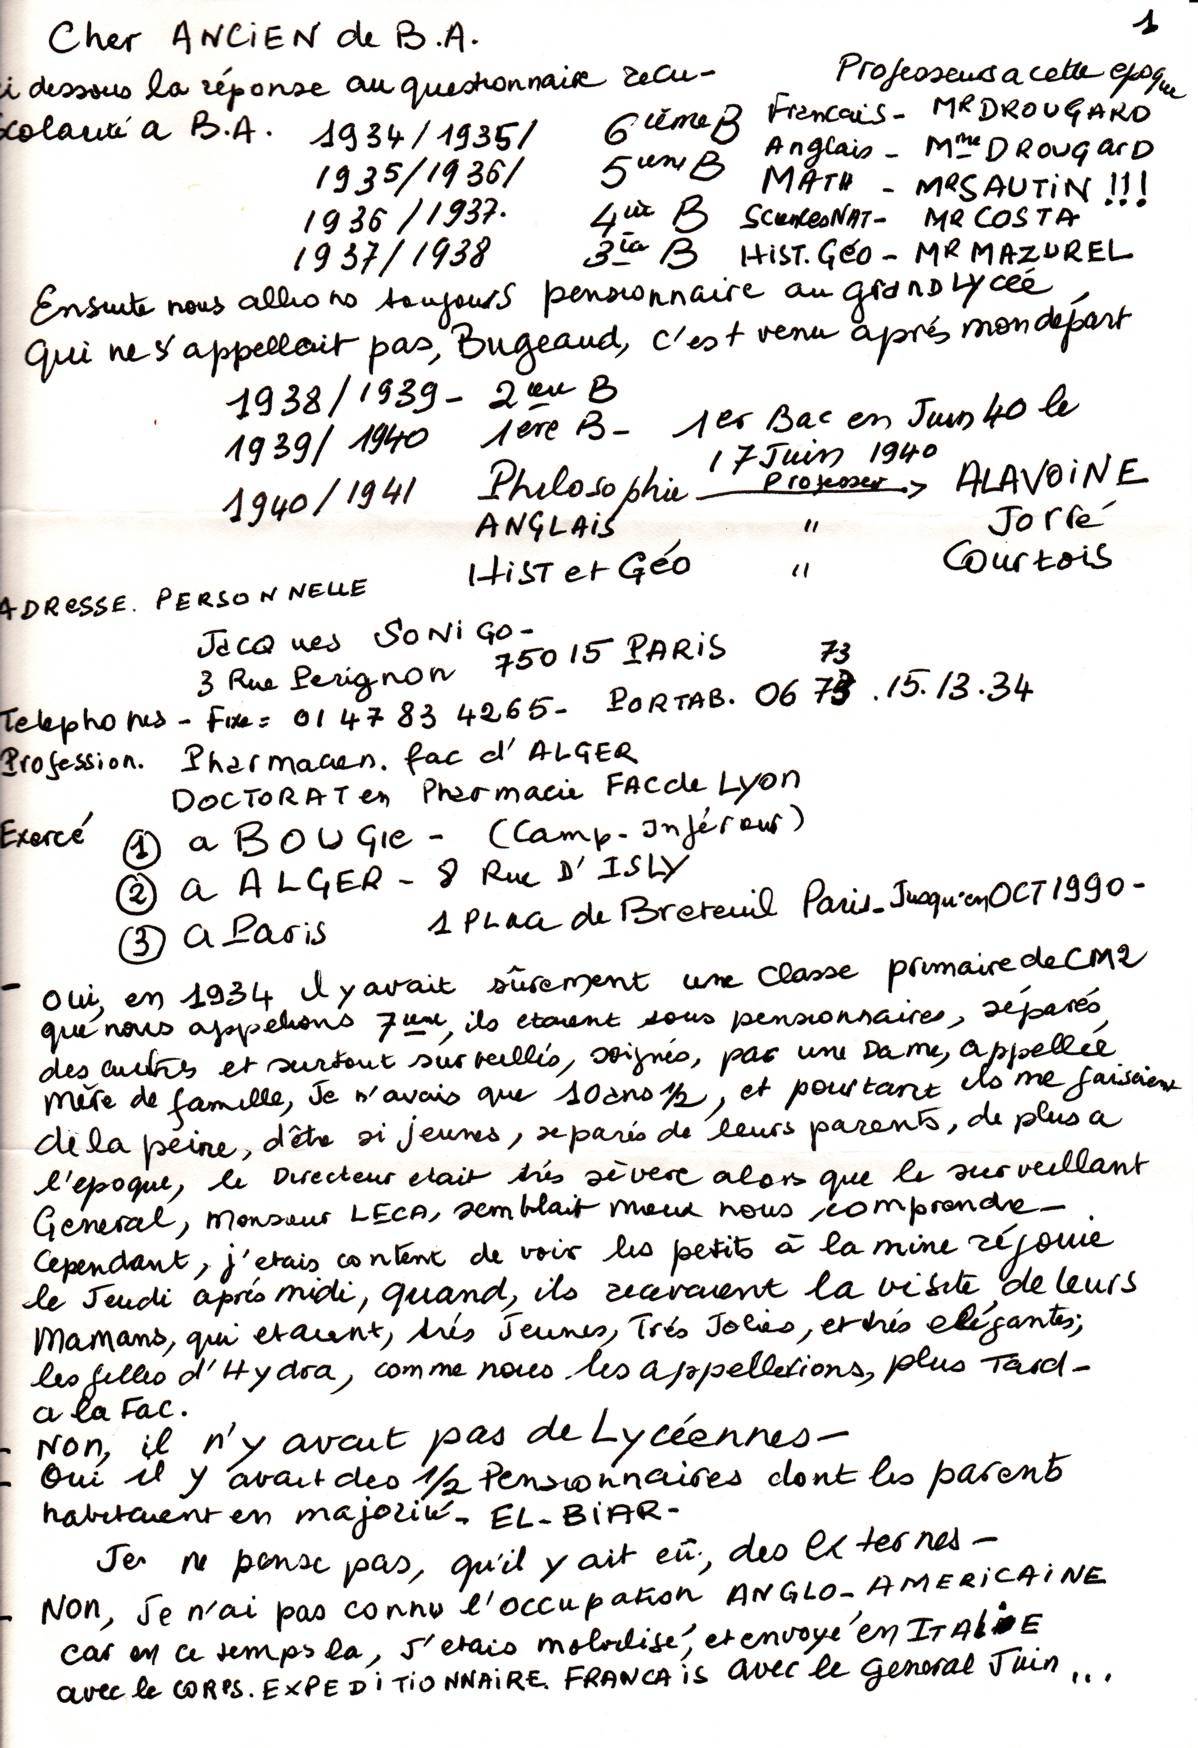 1
Cher ANCIEN de B.A.
i dessous la réponse au questionnaire recu-
Professeurs a cette epoque
colarité a B.A. 1934/1935/ 6ième B Francais - MR DROUGARD
Anglais - Mme DROUGARD
1935/1936/ 5ième B MATH - MR SAUTIN !!!
1936/1937. 4ie B SciencesNAT - MR COSTA
1937/1938 3ie B HIST. Géo - MR MAZUREL
Ensuite nous allions toujours pensionnaire au grand Lycéé
qui ne s'appellait pas, Bugeaud, c'est venu aprés mon départ
1938/1939 - 2eme B
1939/1940 1ère B - 1er Bac en Juin 40 le
17 Juin 1940
1940/1941 Philosophie Professer ALAVOINE
ANGLAIS " Jorré
HIST et Géo " Courtois
ADRESSE. PERSONNELLE
Jacques SONIGO-
3 Rue Perignon 75015 PARIS
73
Telephones - Fixe = 01 47 83 4265 - PORTAB. 06 73.15.13.34
Profession. Pharmacien. fac d'ALGER
DOCTORAT en Pharmacie FAC de Lyon
Exercé 1 a BOUGIE - (Camp-Inférieur)
2 a ALGER - 8 Rue D'ISLY
3 a Paris 1 PLaca de Breteuil Paris - Jusqu'en OCT 1990 -
- Oui, en 1934 il y avait sûrement une classe primaire de CM2
que nous appelions 7eme, ils etaient tous pensionnaires, séparés,
des autres et surtout surveillés, soignés, par une Dame, appellée
mère de famille, Je n'avais que 10 ans 1/2, et pourtant ils me faisaient
de la peine, d'être si jeunes, séparés de leurs parents, de plus a
l'epoque, le Directeur etait trés sévere alors que le surveillant
General, Monsieur LECA, semblait mieux nous comprendre -
Cependant, j'etais content de voir les petits à la mine réjouie
le Jeudi aprés midi, quand, ils recevaient la visite de leurs
Mamans, qui etaient, trés Jeunes, Trés Jolies, et trés elégantes;
les filles d'Hydra, comme nous les appellerions, plus Tard -
a la Fac.
- Non, il n'y avait pas de Lycéennes -
- Oui il y avait des 1/2 Pensionnaires dont les parents
habitaient en majorité - EL-BIAR -
Je ne pense pas, qu'il y ait eû, des externes -
- Non, Je n'ai pas connu l'occupation ANGLO-AMERICAINE
car en ce temps la, J'etais mobilisé, et envoyé en ITALIE
avec le CORPS. EXPEDITIONNAIRE. FRANCAIS avec le general Juin ...